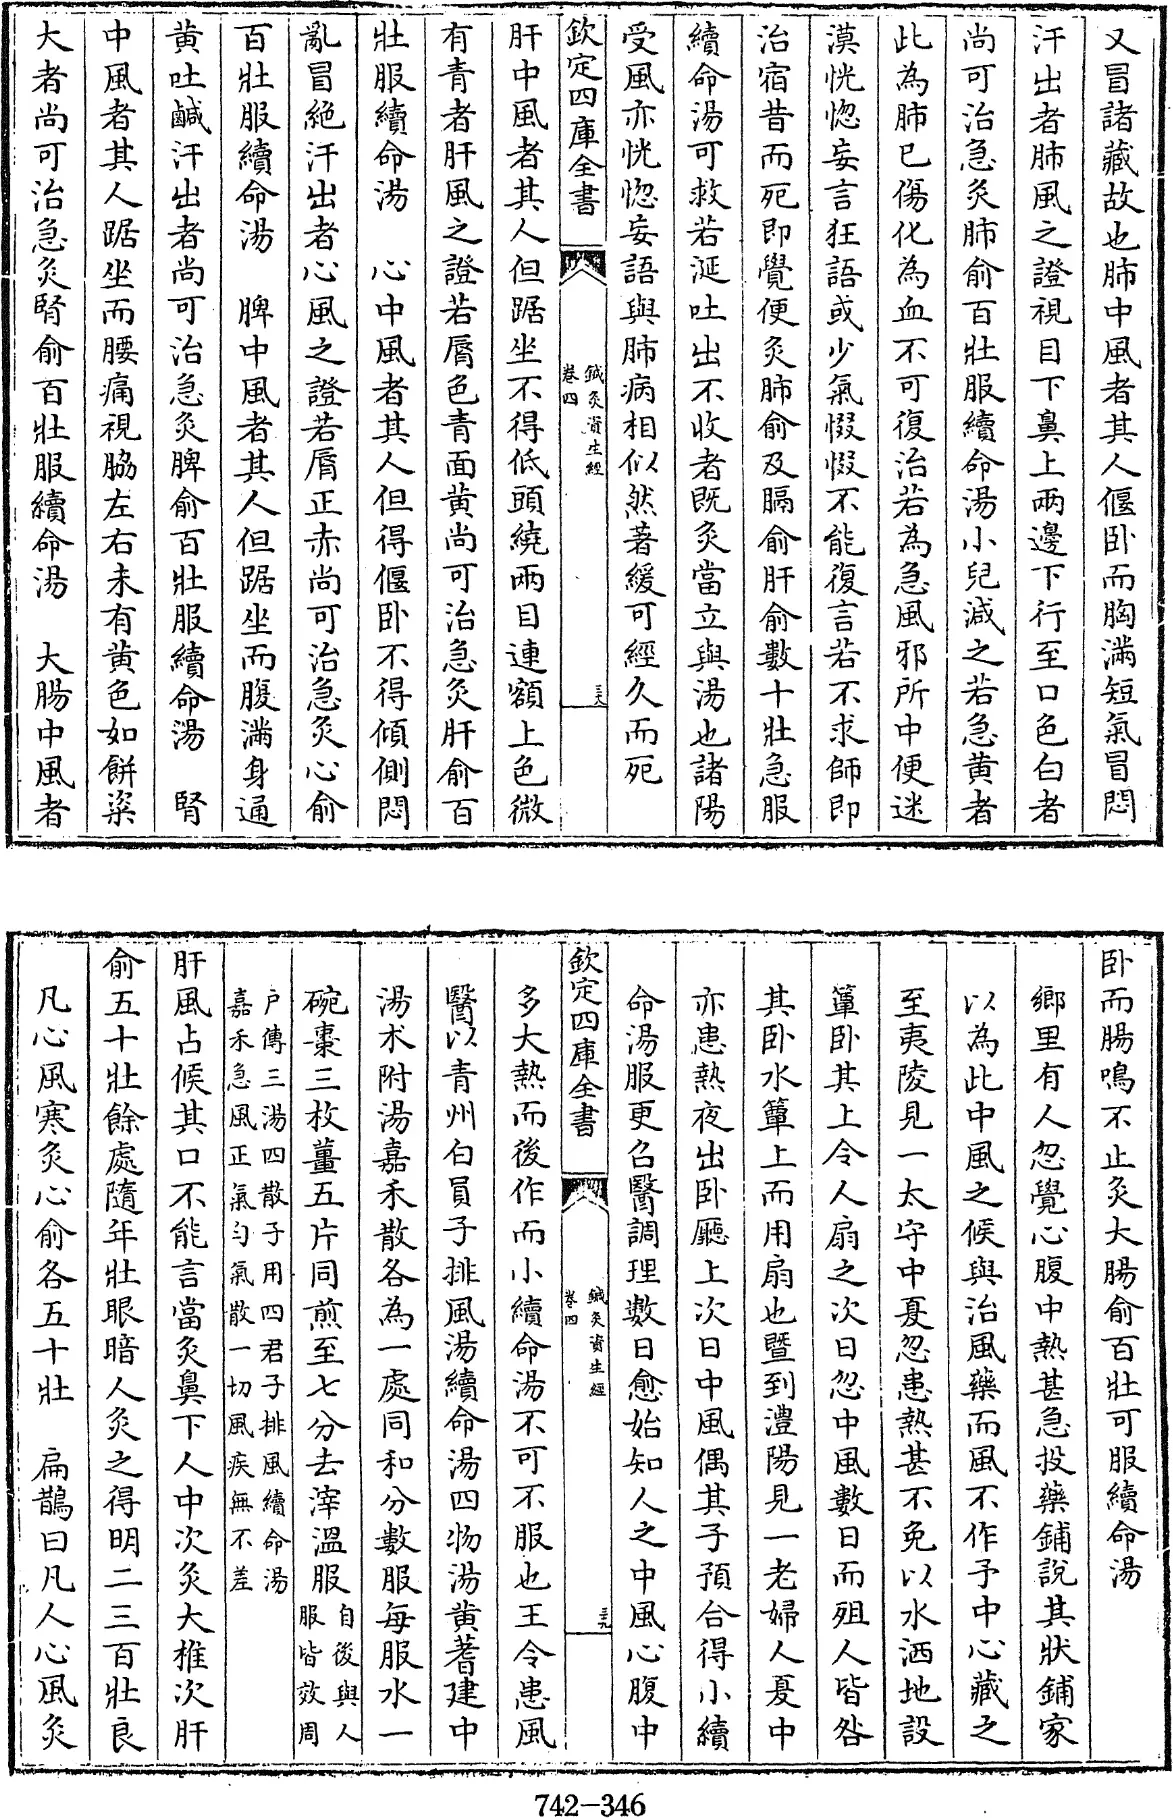 又冒諸藏故也肺中風者其人偃卧而胸滿短氣冒悶
汗出者肺風之證視目下鼻上兩邊下行至口色白者
尚可治急灸肺俞百壯服續命湯小兒減之若急黄者
此為肺已傷化為血不可復治若為急風邪所中便迷
漠恍惚妄言狂語或少氣惙惙不能復言若不求師即
治宿昔而死即覺便灸肺俞及膈俞肝俞數十壯急服
續命湯可救若涎吐出不收者既灸當立與湯也諸陽
受風亦恍惚妄語與肺病相似然著緩可經久而死
欽定四庫全書
鍼灸資生經
卷四
三八
肝中風者其人但踞坐不得低頭繞兩目連額上色微
有青者肝風之證若脣色青面黄尚可治急灸肝俞百
壯服續命湯　心中風者其人但得偃卧不得傾側悶
亂冒絶汗出者心風之證若脣正赤尚可治急灸心俞
百壯服續命湯　脾中風者其人但踞坐而腹滿身通
黄吐鹹汗出者尚可治急灸脾俞百壯服續命湯　腎
中風者其人踞坐而腰痛視脇左右未有黄色如餅粢
大者尚可治急灸腎俞百壯服續命湯　大腸中風者
卧而腸鳴不止灸大腸俞百壯可服續命湯
鄉里有人忽覺心腹中熱甚急投藥鋪說其狀鋪家
以為此中風之候與治風藥而風不作予中心藏之
至夷陵見一太守中夏忽患熱甚不免以水洒地設
簟卧其上令人扇之次日忽中風數日而殂人皆咎
其卧水簟上而用扇也暨到澧陽見一老婦人夏中
亦患熱夜出卧廳上次日中風偶其子預合得小續
命湯服更召醫調理數日愈始知人之中風心腹中
欽定四庫全書
鍼灸資生經
卷四
三九
多大熱而後作而小續命湯不可不服也王令患風
醫以青州白員子排風湯續命湯四物湯黄蓍建中
湯术附湯嘉禾散各為一處同和分數服每服水一
碗棗三枚薑五片同煎至七分去滓温服自後與人
服皆效周
户傳三湯四散子用四君子排風續命湯
嘉禾急風正氣匀氣散一切風疾無不差
肝風占候其口不能言當灸鼻下人中次灸大椎次肝
俞五十壯餘處隨年壯眼暗人灸之得明二三百壯良
凡心風寒灸心俞各五十壯　扁鵲曰凡人心風灸
742-346